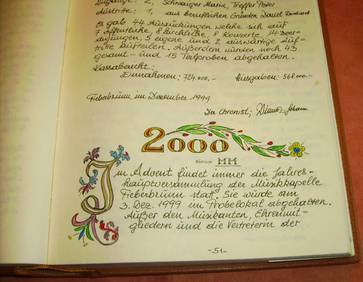 Zugänge: 2, Schwaiger Maria, Treffer Peter
Austritte: 1, aus beruflichen Gründen,
Es gab 44 Ausrückungen welche sich auf
7 öffentliche, 8 kirchliche, 8 Konzerte, 14
5 eigene und 2 auswärtige Auf-
tritte aufteilen. Außerdem wurden noch 43
Gesamt- und 15 Teilproben abgehalten.
Kassabericht:
Einnahmen: 724.000,- Ausgaben: 568.000.-
Fieberbrunn im Dezember 1999
Der Chronist:
2000
MM
Im Advent findet immer die Jahres-
hauptversammlung der Musikkapelle
Fieberbrunn statt. Sie wurde am
3. Dez. 1999 im Probelokal abgehalten.
Außer den Musikanten, Ehrenmit-
gliedern und die Vertreterin der
-51-